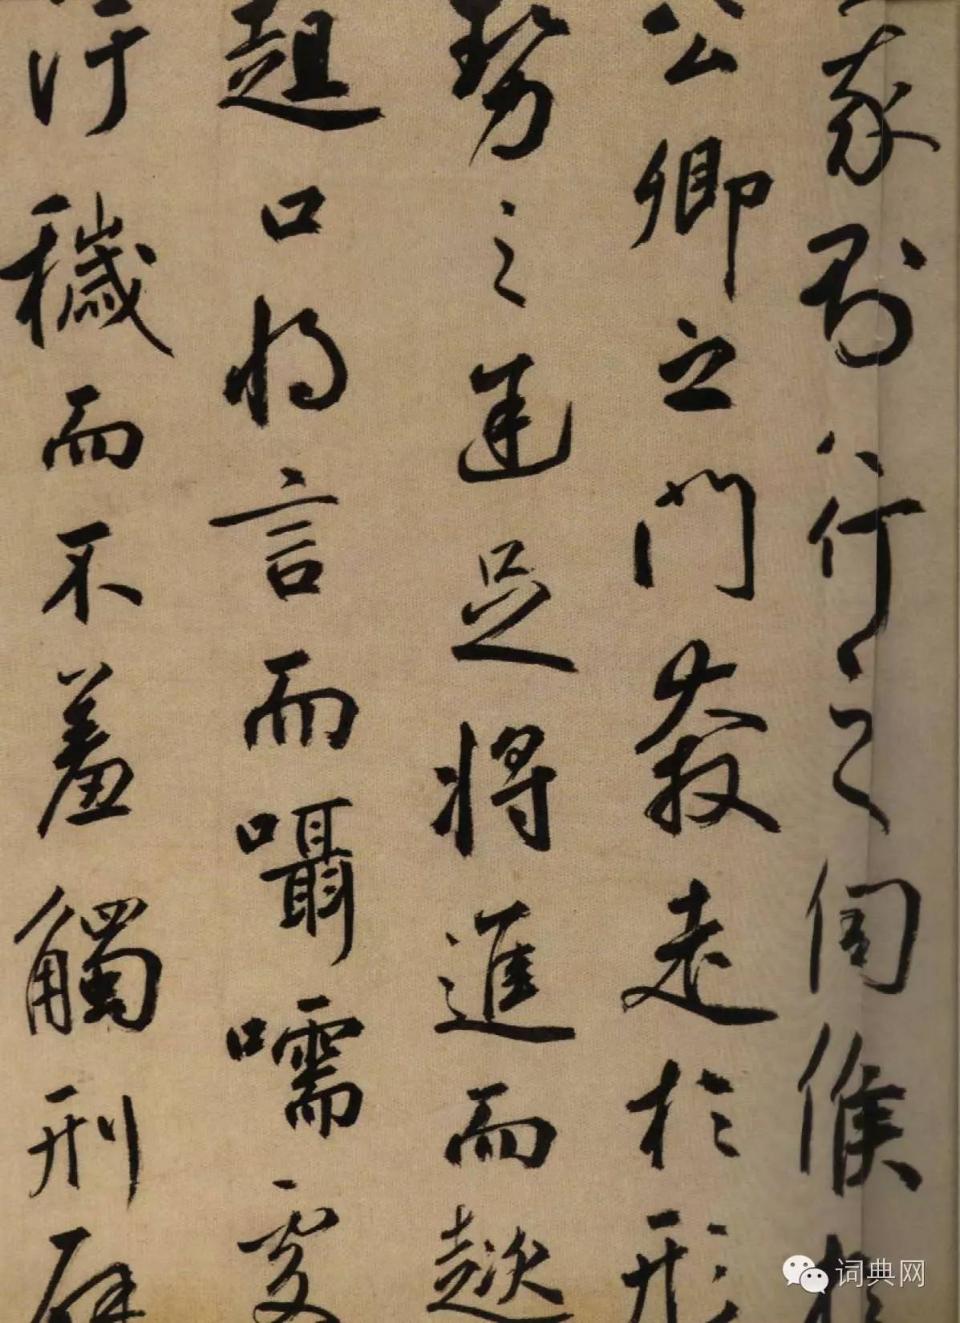 我則行之伺候於
公卿之門奔走於形
勢之途足將進而趑
趄口將言而囁嚅處
汙穢而不羞觸刑辟
词典网